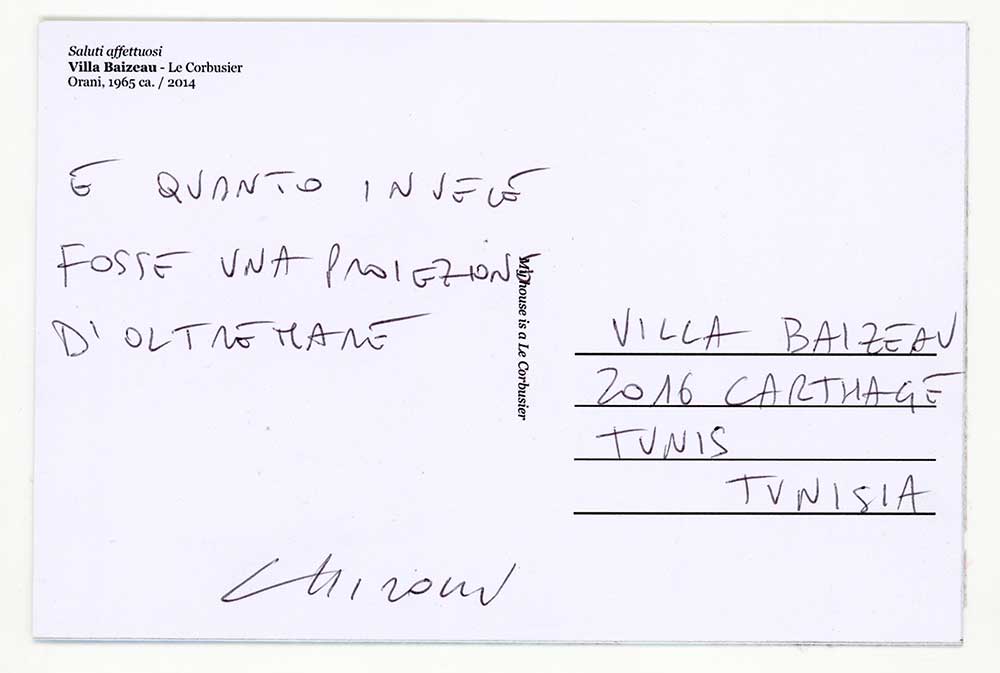 Saluti affettuosi
Villa Baizeau - Le Corbusier
Orani, 1965 ca. / 2014
E QUANTO INVECE
FOSSE UNA PROIEZIONE
D'OLTREMARE
My house is a Le Corbusier
VILLA BAIZEAU
2016 CARTHAGE
TUNIS
TUNISIA